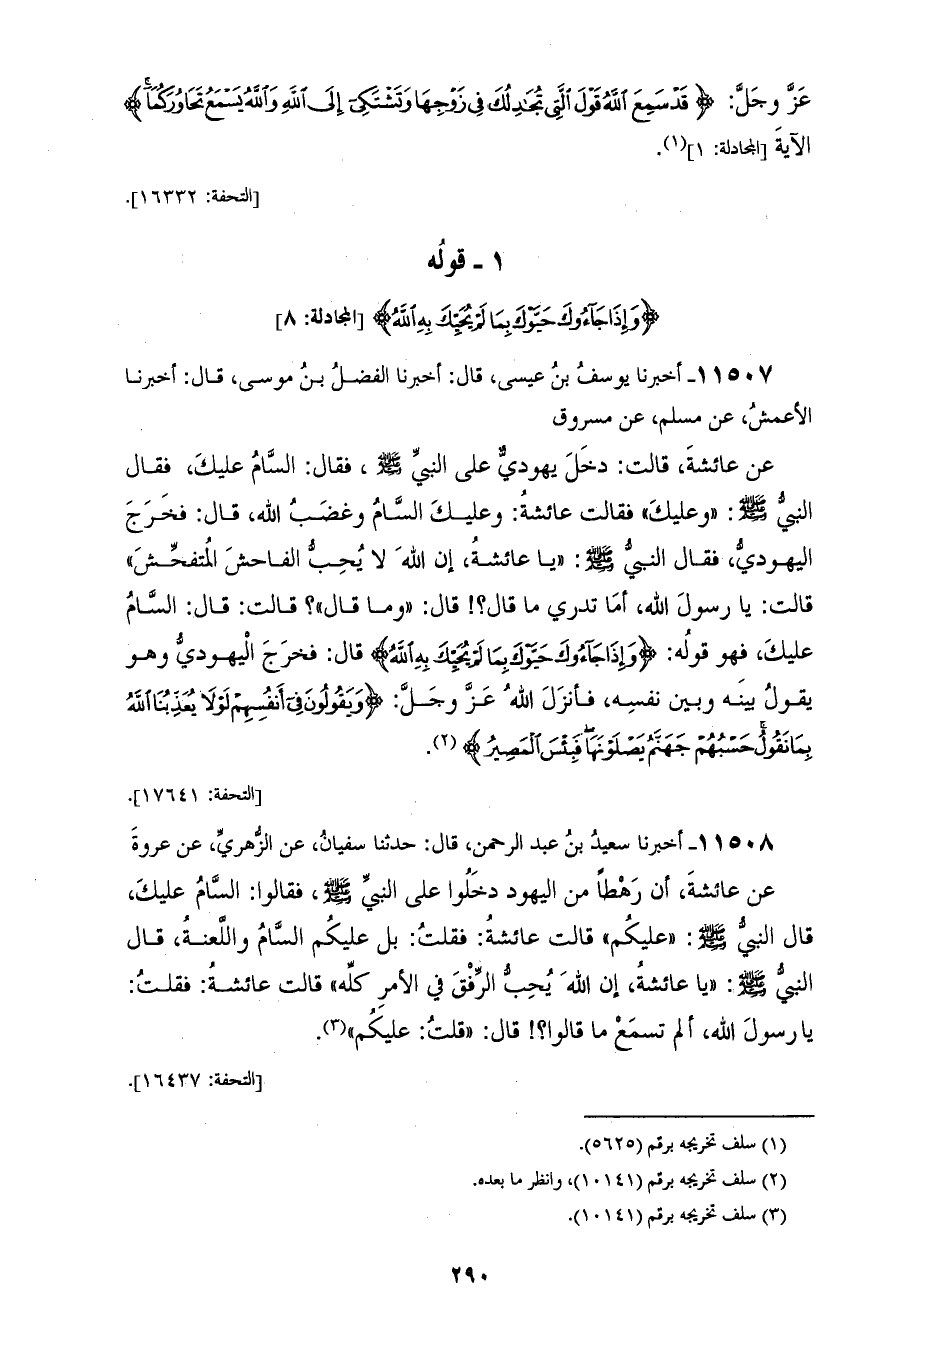 عَزَّ وجَلَّ: ﴿ قَدْ سَمِعَ ٱللَّهُ قَوْلَ ٱلَّتِي تُجَٰدِلُكَ فِي زَوْجِهَا وَتَشْتَكِيٓ إِلَى ٱللَّهِ وَٱللَّهُ يَسْمَعُ تَحَاوُرَكُمَآۚ ﴾
الآيةَ [المجادلة: ١](١).
[التحفة: ١٦٣٣٢].
١ ـ قولُه
﴿وَإِذَا جَآءُوكَ حَيَّوْكَ بِمَا لَمْ يُحَيِّكَ بِهِ ٱللَّهُ﴾ [المجادلة: ٨]
١١٥٠٧ـ أخبرنا يوسفُ بنُ عيسى، قال: أخبرنا الفضلُ بنُ موسى، قال: أخبرنا
الأعمشُ، عن مسلم، عن مسروق
عن عائشةَ، قالت: دخَلَ يهوديٌّ على النبيِّ ﷺ ، فقال: السَّامُ عليكَ، فقال
النبيُّ ﷺ : «وعليكَ» فقالت عائشةُ: وعليكَ السَّامُ وغضَبُ الله، قال: فخَرَجَ
اليهوديُّ، فقال النبيُّ ﷺ : «يا عائشةُ، إن اللهَ لا يُحِبُّ الفاحشَ المُتفحِّشَ»
قالت: يا رسولَ الله، أمَا تدري ما قال؟! قال: «وما قال»؟ قالت: قال: السَّامُ
عليكَ، فهو قولُه: ﴿وَإِذَا جَآءُوكَ حَيَّوْكَ بِمَا لَمْ يُحَيِّكَ بِهِ ٱللَّهُ﴾ قال: فخرَجَ الْيهوديُّ وهو
يقولُ بينَه وبين نفسِه، فأنزَلَ اللهُ عَزَّ وجَلَّ: ﴿وَيَقُولُونَ فِيٓ أَنفُسِهِمْ لَوْلَا يُعَذِّبُنَا ٱللَّهُ
بِمَا نَقُولُۚ حَسْبُهُمْ جَهَنَّمُ يَصْلَوْنَهَاۖ فَبِئْسَ ٱلْمَصِيرُ ﴾ (٢).
[التحفة: ١٧٦٤١].
١١٥٠٨ـ أخبرنا سعيدُ بنُ عبد الرحمن، قال: حدثنا سفيانُ، عن الزُّهريِّ، عن عروةَ
عن عائشةَ، أن رَهْطاً من اليهود دخَلُوا على النبيِّ ﷺ ، فقالوا: السَّامُ عليكَ،
قال النبيُّ ﷺ : «عليكُم» قالت عائشةُ: فقلتُ: بل عليكُم السَّامُ واللَّعنةُ، قال
النبيُّ ﷺ : «يا عائشةُ، إن اللهَ يُحِبُّ الرِّفْقَ في الأمرِ كلِّه» قالت عائشةُ: فقلتُ:
يا رسولَ الله، ألم تسمَعْ ما قالوا؟! قال: «قلتُ: عليكُم»(٣).
[التحفة: ١٦٤٣٧].
(١) سلف تخريجه برقم (٥٦٢٥).
(٢) سلف تخريجه برقم (١٠١٤١)، وانظر ما بعده.
(٣) سلف تخريجه برقم (١٠١٤١).
٢٩٠